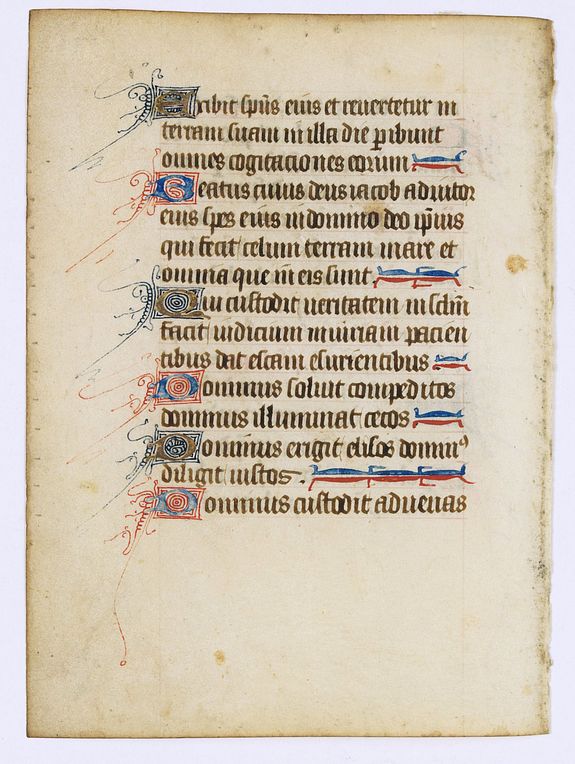 Exibit sp̄us eius et reuertetur in
terram suam in illa die ꝑibunt
omnes cogitaciones eorum
Beatus cuius deus iacob adiutor
eius spes eius in domino deo ip̄ius
qui fecit celum terram mare et
omnia que in eis sunt
Qui custodit ueritatem in sclm̄
facit iudicium iniuriam pacien
tibus dat escam esurientibus
Dominus soluit compeditos
dominus illuminat cecos
Dominus erigit elisos dominꝰ
diligit iustos.
Dominus custodit aduenas